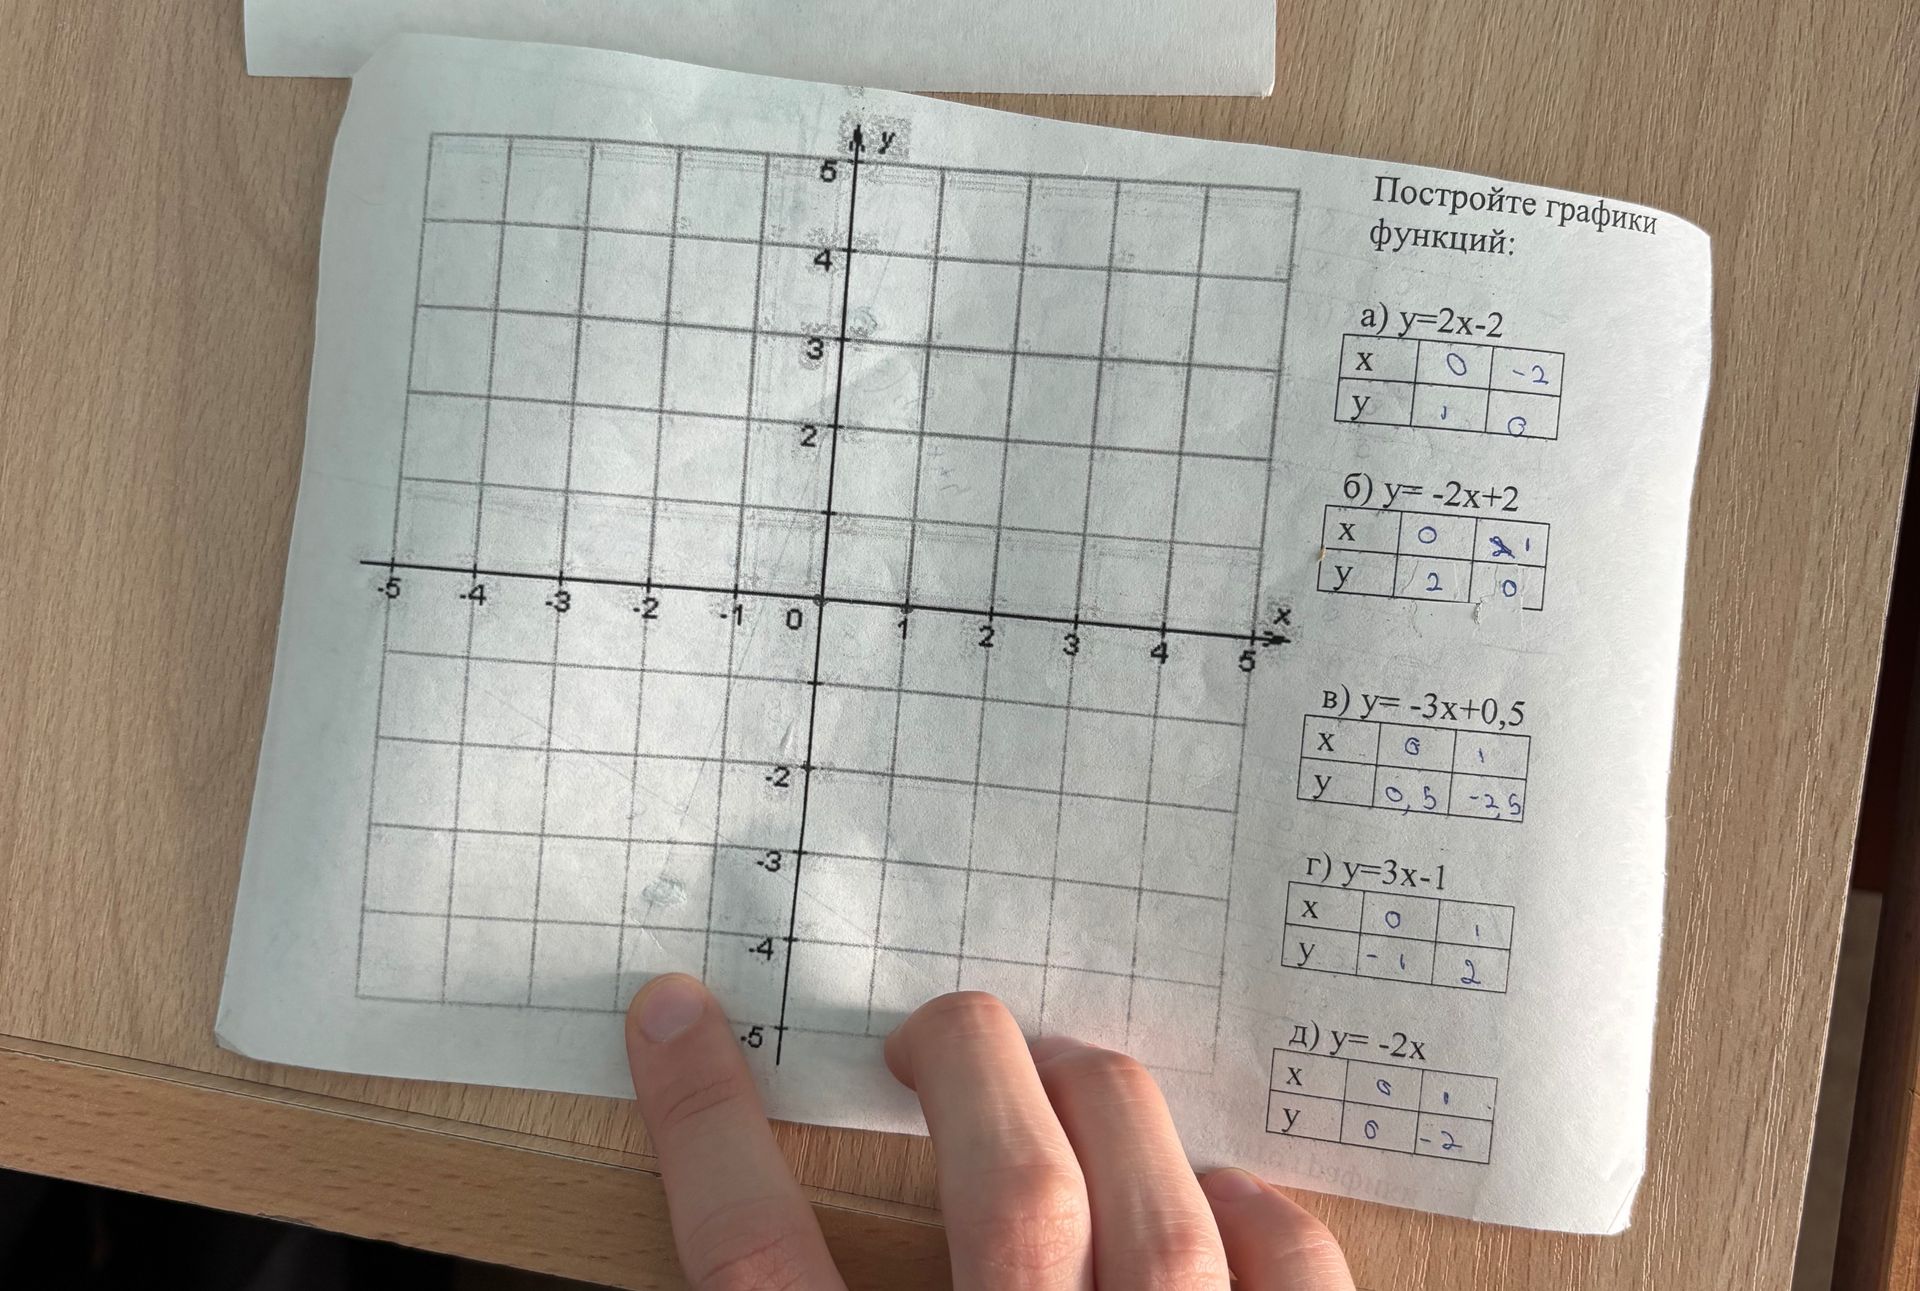 y
5
4
3
2
-5 -4 -3 -2 -1 0 1 2 3 4 5 x
-2
-3
-4
-5
Постройте графики
функций:
а) y=2x-2
x 0 -2
y 1 0
б) y= -2x+2
x 0 1
y 2 0
в) y= -3x+0,5
x 0 1
y 0,5 -2,5
г) y=3x-1
x 0 1
y -1 2
д) y= -2x
x 0 1
y 0 -2